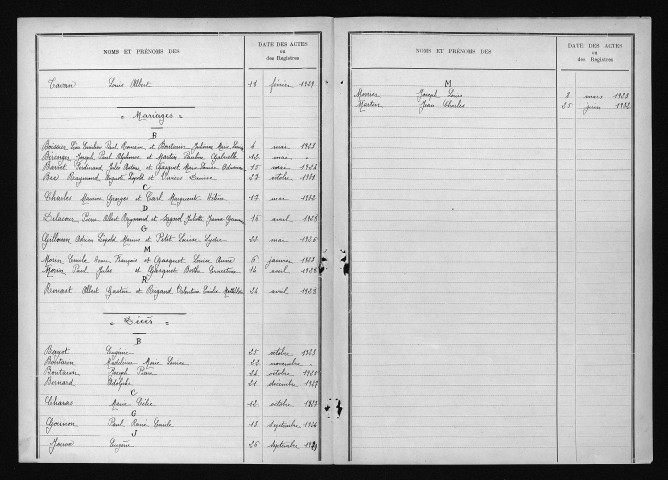 NOMS ET PRÉNOMS DES
DATE DES ACTES
ou
des Registres
Tavan Louis Albert 11 février 1929
" Mariages "
B
Boissier Léon Emilien Paul Romain et Bontaron Julienne Marie Louise 6 mai 1923
Bérenger Joseph Paul Alphonse et Martin Pauline Gabrielle 12 mai "
Barret Ferdinand Jules et Gasquet Marie Louise 15 1924
Bec Raymond Auguste Léopold et Vivier Denise 27 octobre 1931
C
Charles Maurice Georges et Carl Marguerite Hélène 17 mai 1932
D
Delacour Pierre Albert Raymond et Sagnol Juliette Jeanne 16 avril 1928
G
Gillouin Adrien Léopold Marius et Petit Louise Lydie 23 mai 1925
M
Morin Emile Henri François et Gasquet Louise Annie 6 janvier 1923
Morin Paul Jules et Gasquet Berthe Ernestine 12 avril 1926
R
Roucast Albert Gaston et Rigaud Célestine Emilie Mathilde 24 avril 1928
" Décès "
B
Barjot Eugénie 25 octobre 1923
Bontaron Madeleine Marie Louise 22 novembre "
Bontaron Joseph Pierre 22 octobre 1925
Bernard Adolphe 21 décembre 1927
C
Charas Marie Célie 12 octobre 1927
G
Gounon Paul René Emile 13 septembre 1926
J
Jouve Eugène 26 septembre 1921
NOMS ET PRÉNOMS DES
DATE DES ACTES
ou
des Registres
M
Monier Joseph Louis 2 mars 1925
Martin Jean Charles 25 juin 1932